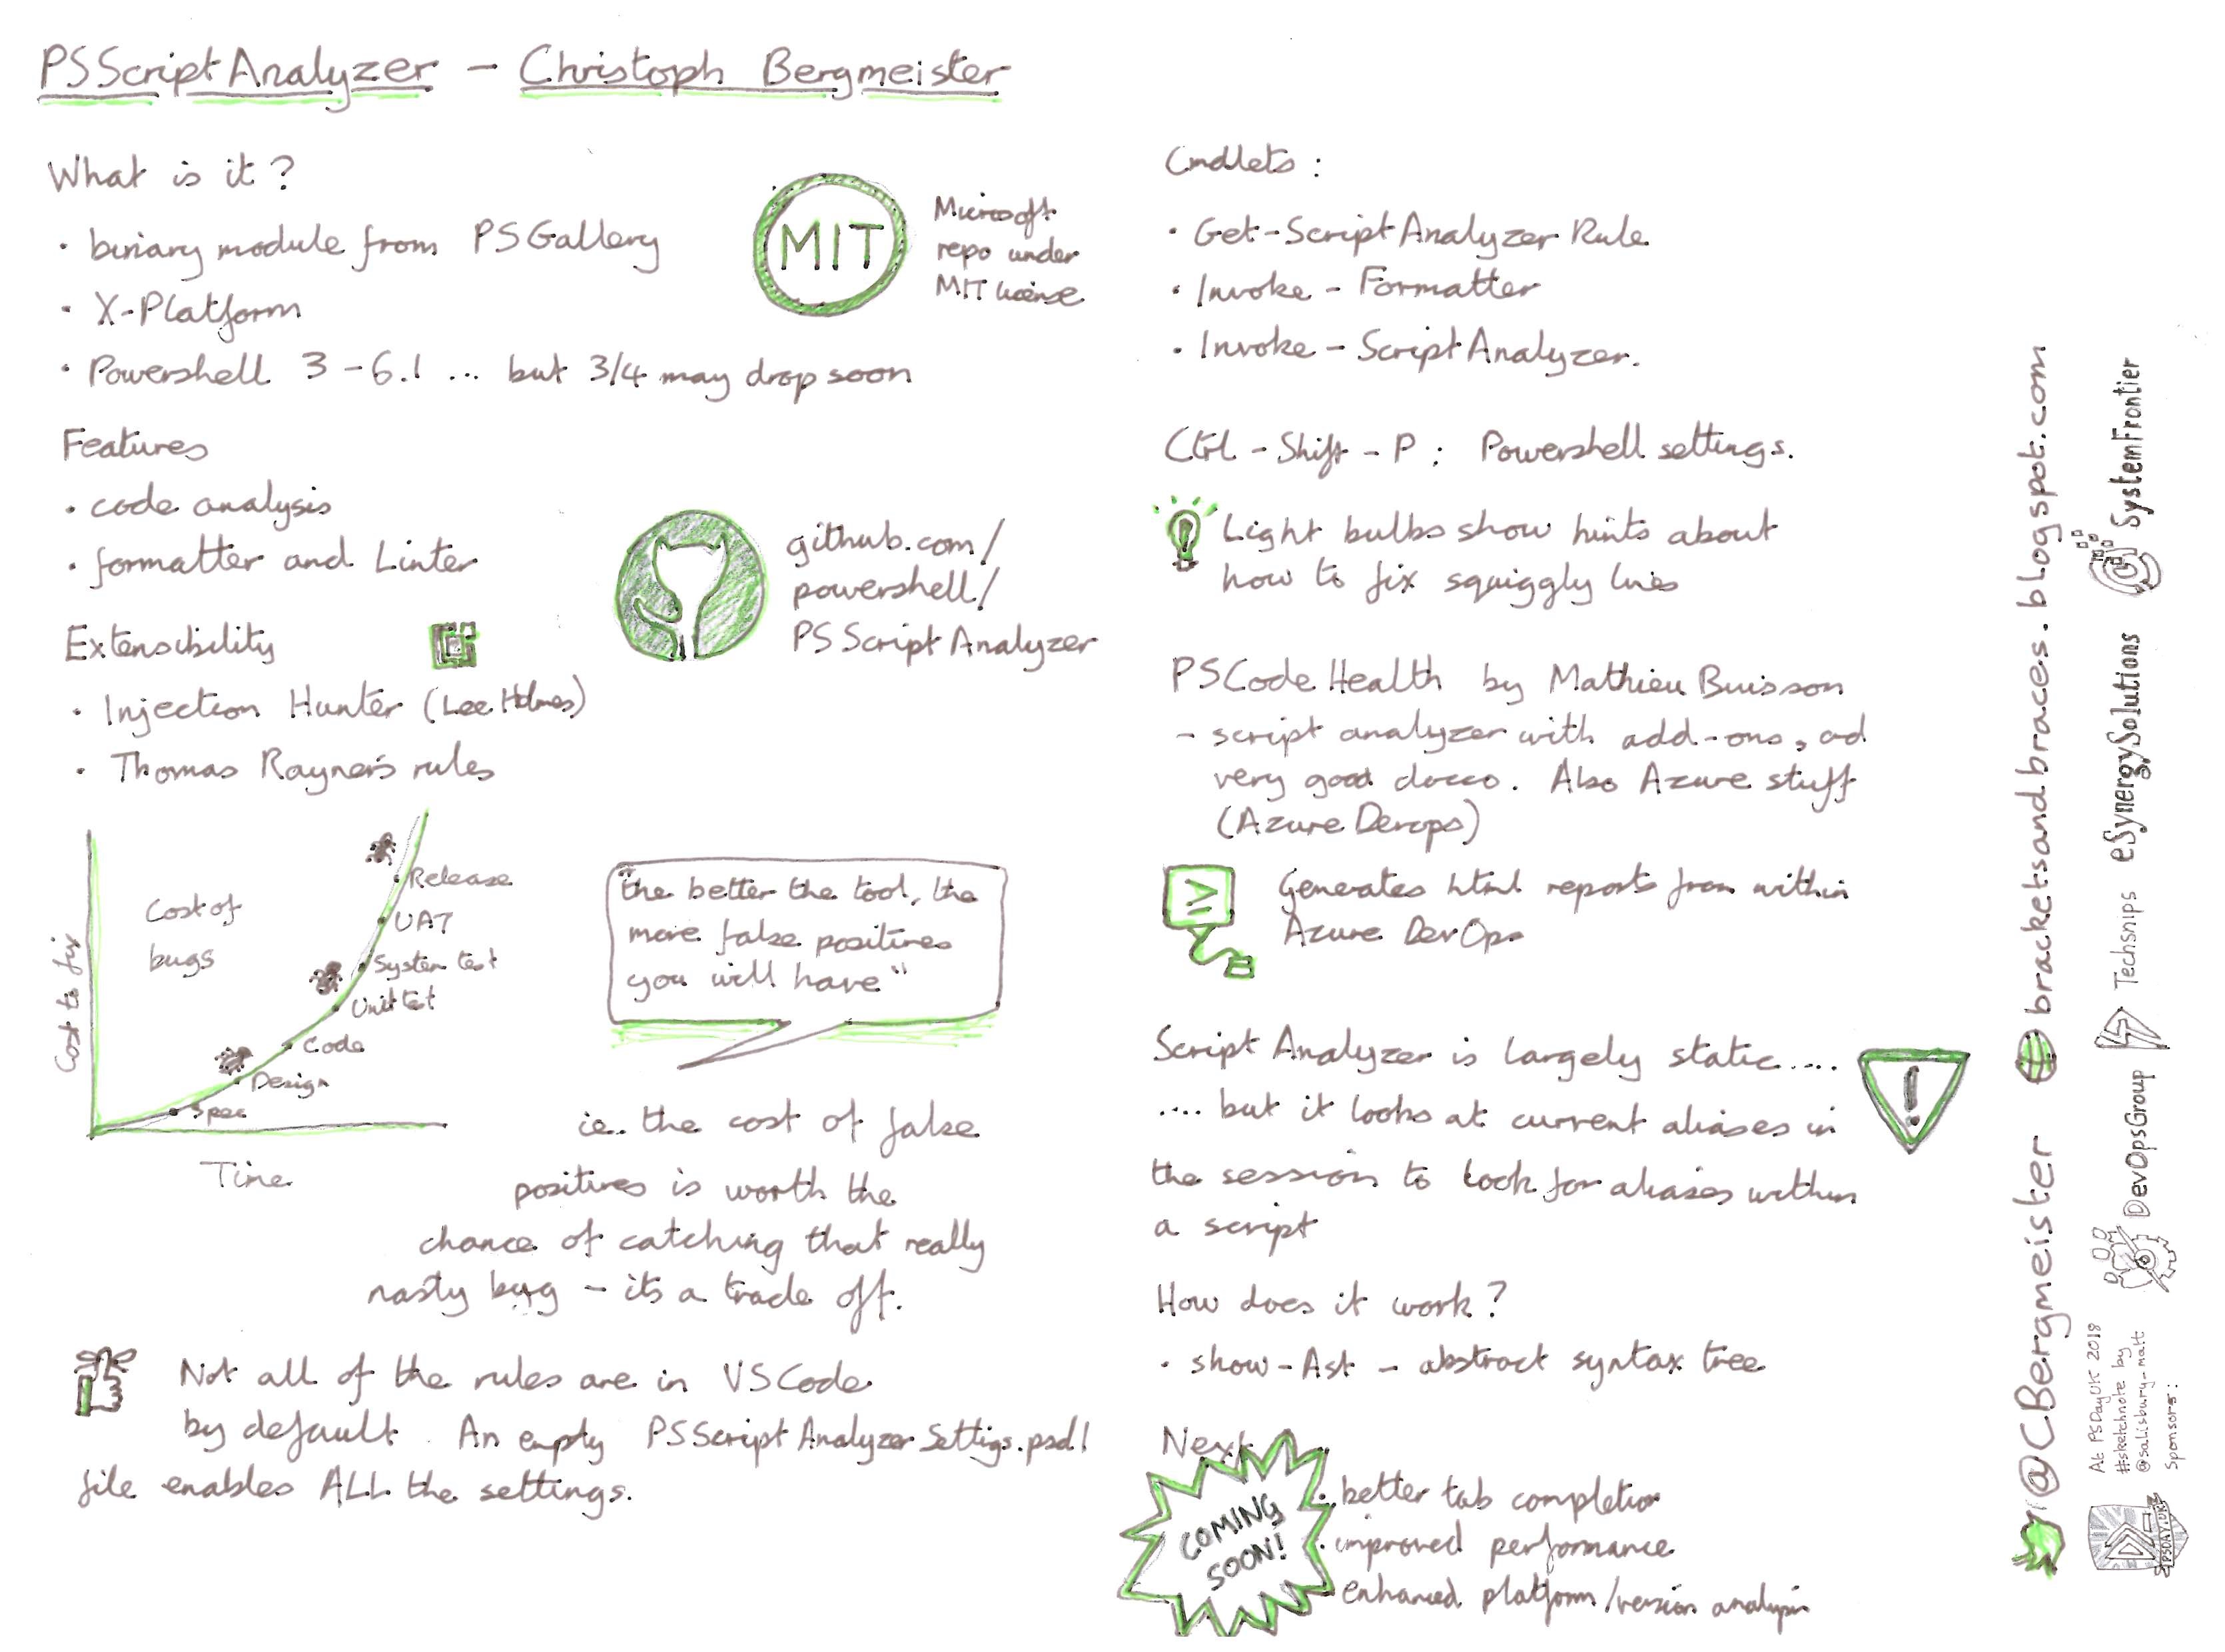 PSScriptAnalyzer - Christoph Bergmeister
What is it?
• binary module from PSGallery
• X-Platform
• Powershell 3-6.1 ... but 3/4 may drop soon
MIT
Microsoft
repo under
MIT license
Features
• code analysis
• formatter and Linter
github.com/
powershell/
PSScriptAnalyzer
Extensibility
• Injection Hunter (Lee Holmes)
• Thomas Rayner's rules
Cost to fix
Cost of
bugs
Release
UAT
System test
Unit test
Code
Design
Spec
Time
"the better the tool, the
more false positives
you will have"
ie. the cost of false
positives is worth the
chance of catching that really
nasty bug - its a trade off.
Not all of the rules are in VSCode
by default. An empty PSScriptAnalyzerSettigs.psd1
file enables ALL the settings.
Cmdlets:
• Get-ScriptAnalyzerRule
• Invoke-Formatter
• Invoke-ScriptAnalyzer.
Ctrl-Shift-P: Powershell settings.
Light bulbs show hints about
how to fix squiggly lines
PSCodeHealth by Mathieu Buisson
- script analyzer with add-ons, ad
very good docco. Also Azure stuff
(Azure Devops)
>
Generates html reports from within
Azure DevOps
Script Analyzer is largely static....
.... but it looks at current aliases in
the session to look for aliases within
a script
!
How does it work?
• show-Ast - abstract syntax tree
Next
COMING
SOON!
• better tab completion
• improved performance
enhanced platform/version analysis
@CBergmeister bracketsandbraces.blogspot.com
At PSDayUK 2018
#sketchnote by
@salisbury_matt
Sponsors:
PSDAY.UK
DevOpsGroup
Techsnips
eSynergySolutions
SystemFrontier